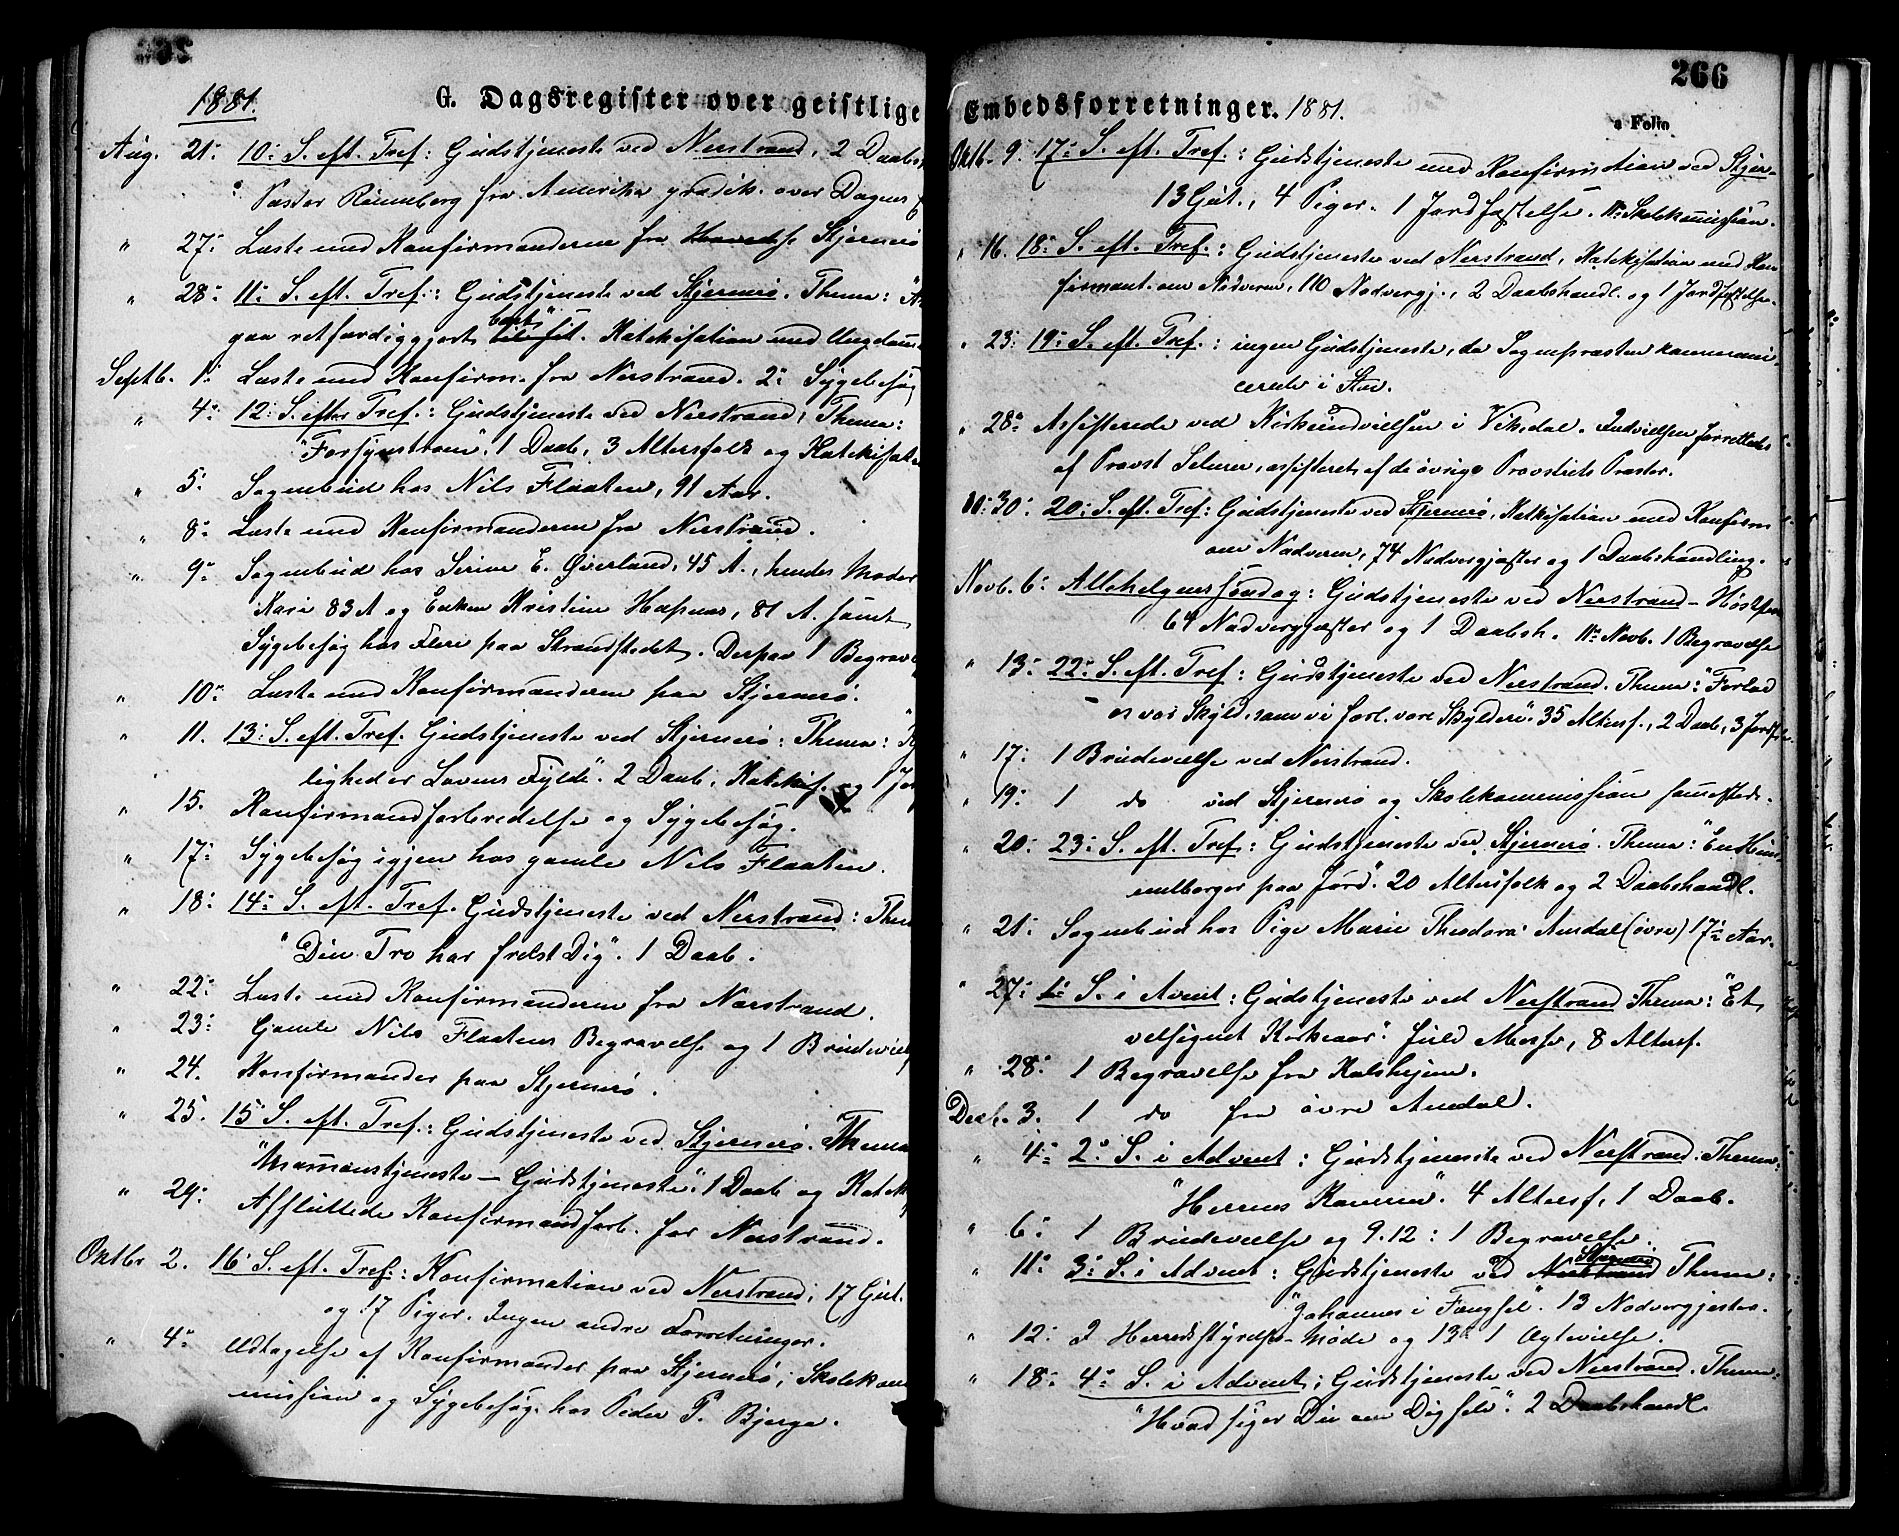 1881.
G. Dagsregister over geistlige
Aug. 21: 10: S. eft. Tref: Gudstjeneste ved Nerstrand, 2 Daabs
Pastor Rönneberg fra Amerika prædik. over Dagens
" 27: Læste med Konfirmanderne fra Stjernerö
" 28: 11: S. eft. Tref.: Gudstjeneste ved Stjernerö. Thema: "At
gaa retfærdiggjort bort". Katekisation med Ungdom
Septb. 1: Læste med Konfirm. fra Nerstrand. 2: Sygebesög
" 4: 12: S. efter Tref.: Gudstjeneste ved Nerstrand; Thema:
"Forsynstroen". 1 Daab, 3 Altersfolk og Katekisat
" 5: Sognebud hos Nils Flaaten, 91 Aar.
" 8: Læste med Konfirmanderne fra Nerstrand.
" 9: Sognebud hos Serine E. Øverland, 45 A., hendes Moder
Kari 83 A og Enken Kristine Hapnes, 81 A. samt
Sygebesög hos Flere paa Strandstedet. Derpaa 1 Begrav
" 10: Læste med Konfirmanderne paa Stjernerö.
" 11. 13: S. eft. Tref. Gudstjeneste ved Stjernerö: Thema: "Kj
lighed er Lovens Fylde". 2 Daab, Katekis. og 1 Jor
" 15. Konfirmandforberedelse og Sygebesög.
" 17: Sygebesög igjen hos gamle Nils Flaaten.
" 18: 14: S. eft. Tref. Gudstjeneste ved Nerstrand: Them
"Din Tro har frelst Dig". 1 Daab.
" 22: Læste med Konfirmanderne fra Nerstrand.
" 23: Gamle Nils Flaatens Begravelse og 1 Brudeviels
" 24. Konfirmander paa Stjernerö.
" 25. 15: S. eft. Tref.: Gudstjeneste ved Stjernerö. Thema
"Mamonstjeneste – Gudstjeneste". 1 Daab og Katek
" 29: Afsluttede Konfirmandforb. for Nerstrand.
Oktbr 2. 16: S. eft. Tref.: Konfirmation ved Nerstrand; 17 Gut.
og 17 Piger. Ingen andre Forretninger.
" 4: Udtagelse af Konfirmander paa Stjernerö; Skolekom
mission og Sygebesög hos Peder P. Bjerge.
266
Embedsforretninger. 1881.
a Folio
Oktb. 9: 17: S. eft. Tref.: Gudstjeneste med Konfirmation ved Stjer-
13 Gut., 4 Piger. 1 Jordfæstelse. 11: Skolekommission.
" 16. 18: S. eft. Tref.: Gudstjeneste ved Nerstrand, Katekisation med Kon
firmant. om Nadveren, 110 Nadvergj., 2 Daabshandl. og 1 Jordfæstelse.
" 23: 19: S. eft. Tref.: ingen Gudstjeneste, da Sognepræsten kommuni
cerede i
" 28: Assisterede ved Kirkeindvielsen i Vikedal. Indvielsen forrettedes
af Provst, assisteret af de övrige Provstiets Præster.
30: 20: S. eft. Tref: Gudstjeneste ved Stjernerö, Katekisation med Konfirm
om Nadveren, 74 Nadvergjæster og 1 Daabshandling.
Novb. 6: Allehelgenssöndag: Gudstjeneste ved Nerstrand –
64 Nadvergjæster og 1 Daabsh. 11: Novb. 1 Begravelse
" 13: 22: S. eft. Tref: Gudstjeneste ved Nerstrand. Thema: "Forlad
os vor Skyld, som vi forl. vore Skyldn". 35 Altersf., 2 Daab, 3 Jordf
" 17: 1 Brudevielse ved Nerstrand.
" 19: 1 do ved Stjernerö og Skolekommission samesteds.
" 20: 23: S. eft. Tref: Gudstjeneste ved Stjernerö. Thema: "En Him
melborger paa Jord". 20 Altersfolk og 2 Daabshandl.
" 21: Sognebud hos Pige Marie Theodora Amdal (övre) 17 Aar.
" 27: 1: S. i Avent: Gudstjeneste ved Nerstrand Thema: "Et
velsignet Kirkeaar". fuld Messe, 8 Altersf.
" 28: 1 Begravelse fra Kalsheim.
Decb. 3. 1 do fra övre Amdal.
" 4: 2: S. i Advent: Gudstjeneste ved Nerstrand. Thema:
"Herrens Kommen". 4 Altersf, 1 Daab.
" 6: 1 Brudevielse og 9.12: 1 Begravelse.
" 11: 3: S. i Advent: Gudstjeneste ved Nerstrand Stjernerö Thema:
"Johannes i Fængsel". 13 Nadvergjester.
" 12: I Herredsstyrelses-Möde og 13: 1 Ægtevielse.
" 18: 4: S. i Advent; Gudstjeneste ved Nerstrand. Thema:
"Hvad siger Du om Dig selv". 2 Daabshandl.